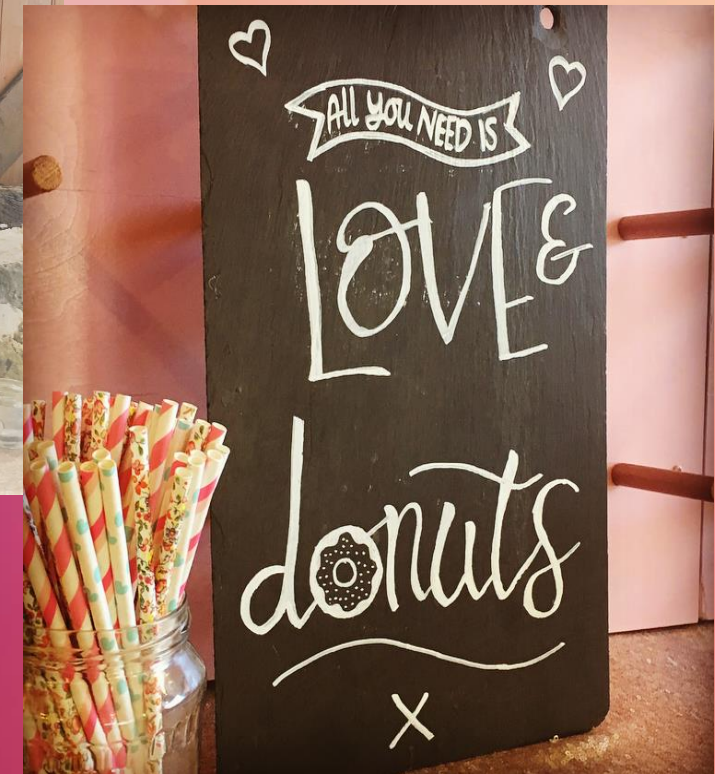 All you NEED IS
LOVE &
donuts
X